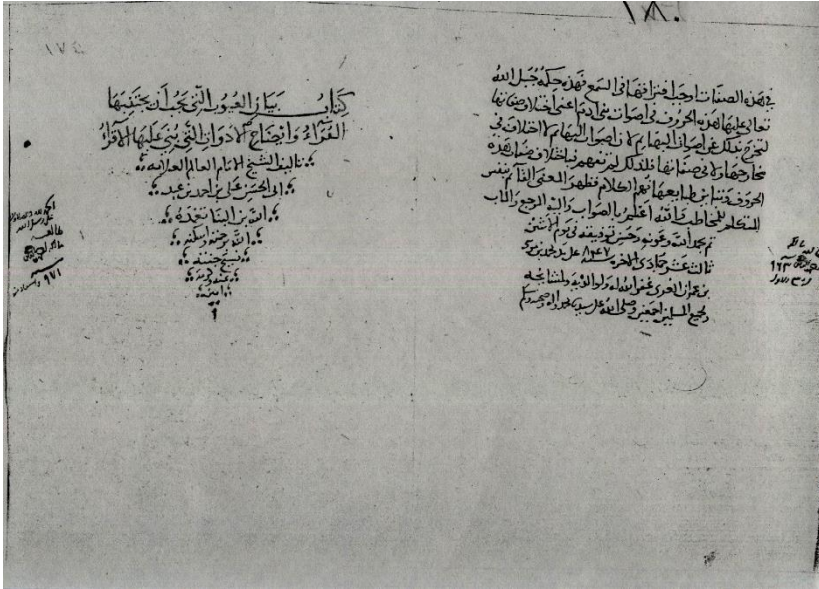 ١٨٠
في هذه الصفات اوجب افتراقها في السمع فهذه حكمة جبل الله
تعالى عليها هذه الحروف في اصوات بني ادم اعني اختلاف صفاتها
لتخرج بذلك عن اصوات البهايم لان اصوات البهايم لا اختلاف في
مخارجها ولا في صفاتها فلذلك لم تفهم فباختلاف صفات هذه
الحروف وتباين طبايعها فهم الكلام فظهر المعنى القايم بنفس
المتكلم للمخاطب والله اعلم بالصواب واليه المرجع والماب
تم بحمد الله وعونه وحسن توفيقه في يوم الاثنين
ثالث عشر جمادى الاخر سنة ٨٤٧ على يد محمد بن موسى
بن عمران الغزي غفر الله له ولوالديه ولمشايخه
ولجميع المسلمين اجمعين وصلى الله على سيدنا محمد واله وصحبه وسلم
١٧٤
كتاب بيان العيوب التي يجب أن يجتنبها
القراء وايضاح الادوات التي بني عليها الاقراء
تاليف الشيخ الامام العالم العلامه
ابي الحسن علي بن احمد بن عبد
الله بن البنا تغمده
الله برحمته واسكنه
فسيح جنته
بمنه وكرمه
امين
الحمد لله
طالعه
٩٧١